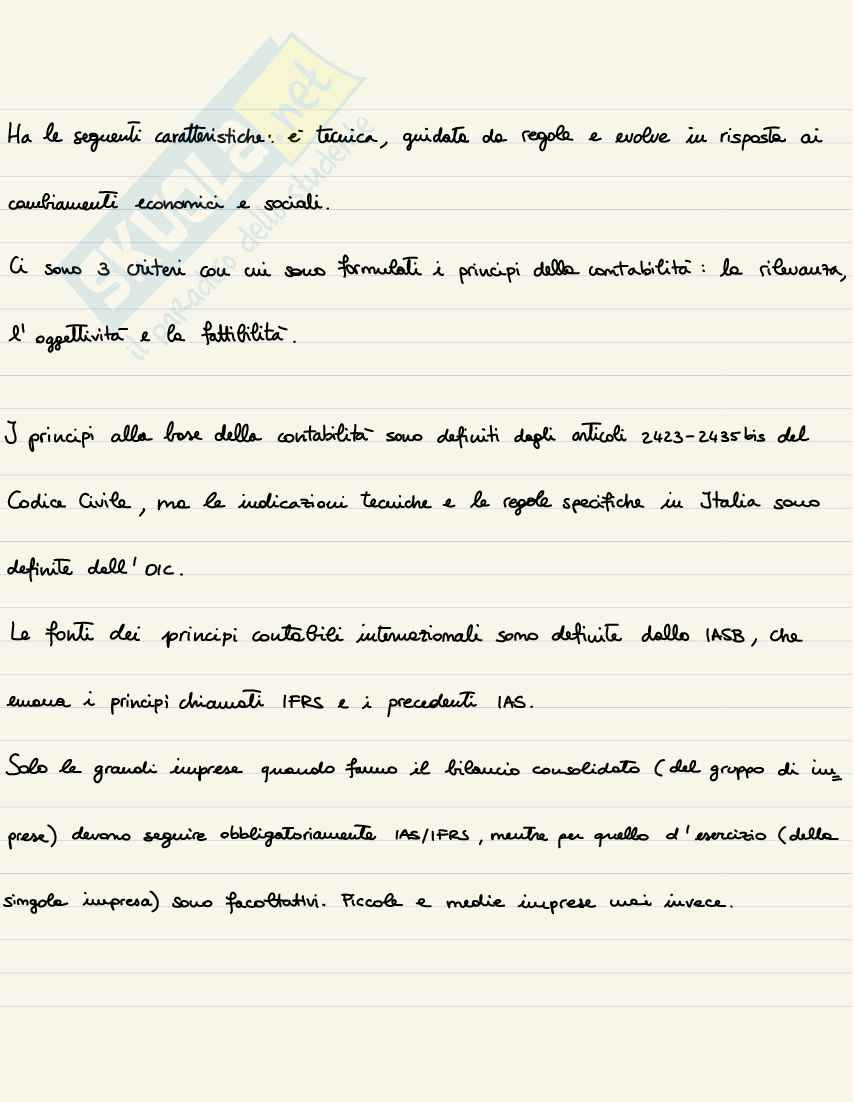 SKUOLA.net
il paradiso dello studente
Ha le seguenti caratteristiche: è tecnica, guidata da regole e evolve in risposta ai
cambiamenti economici e sociali.
Ci sono 3 criteri con cui sono formulati i principi della contabilità: la rilevanza,
l'oggettività e la fattibilità.
I principi alla base della contabilità sono definiti dagli articoli 2423-2435 bis del
Codice Civile, ma le indicazioni tecniche e le regole specifiche in Italia sono
definite dall'OIC.
Le fonti dei principi contabili internazionali sono definite dallo IASB, che
emana i principi chiamati IFRS e i precedenti IAS.
Solo le grandi imprese quando fanno il bilancio consolidato (del gruppo di im=
prese) devono seguire obbligatoriamente IAS/IFRS, mentre per quello d'esercizio (della
singola impresa) sono facoltativi. Piccole e medie imprese mai invece.